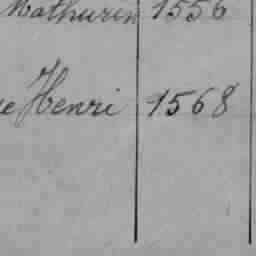 Mathurin 1556
e Henri 1568